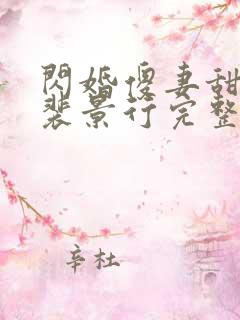 閃婚傻妻甜
裴景行完整
辛杜